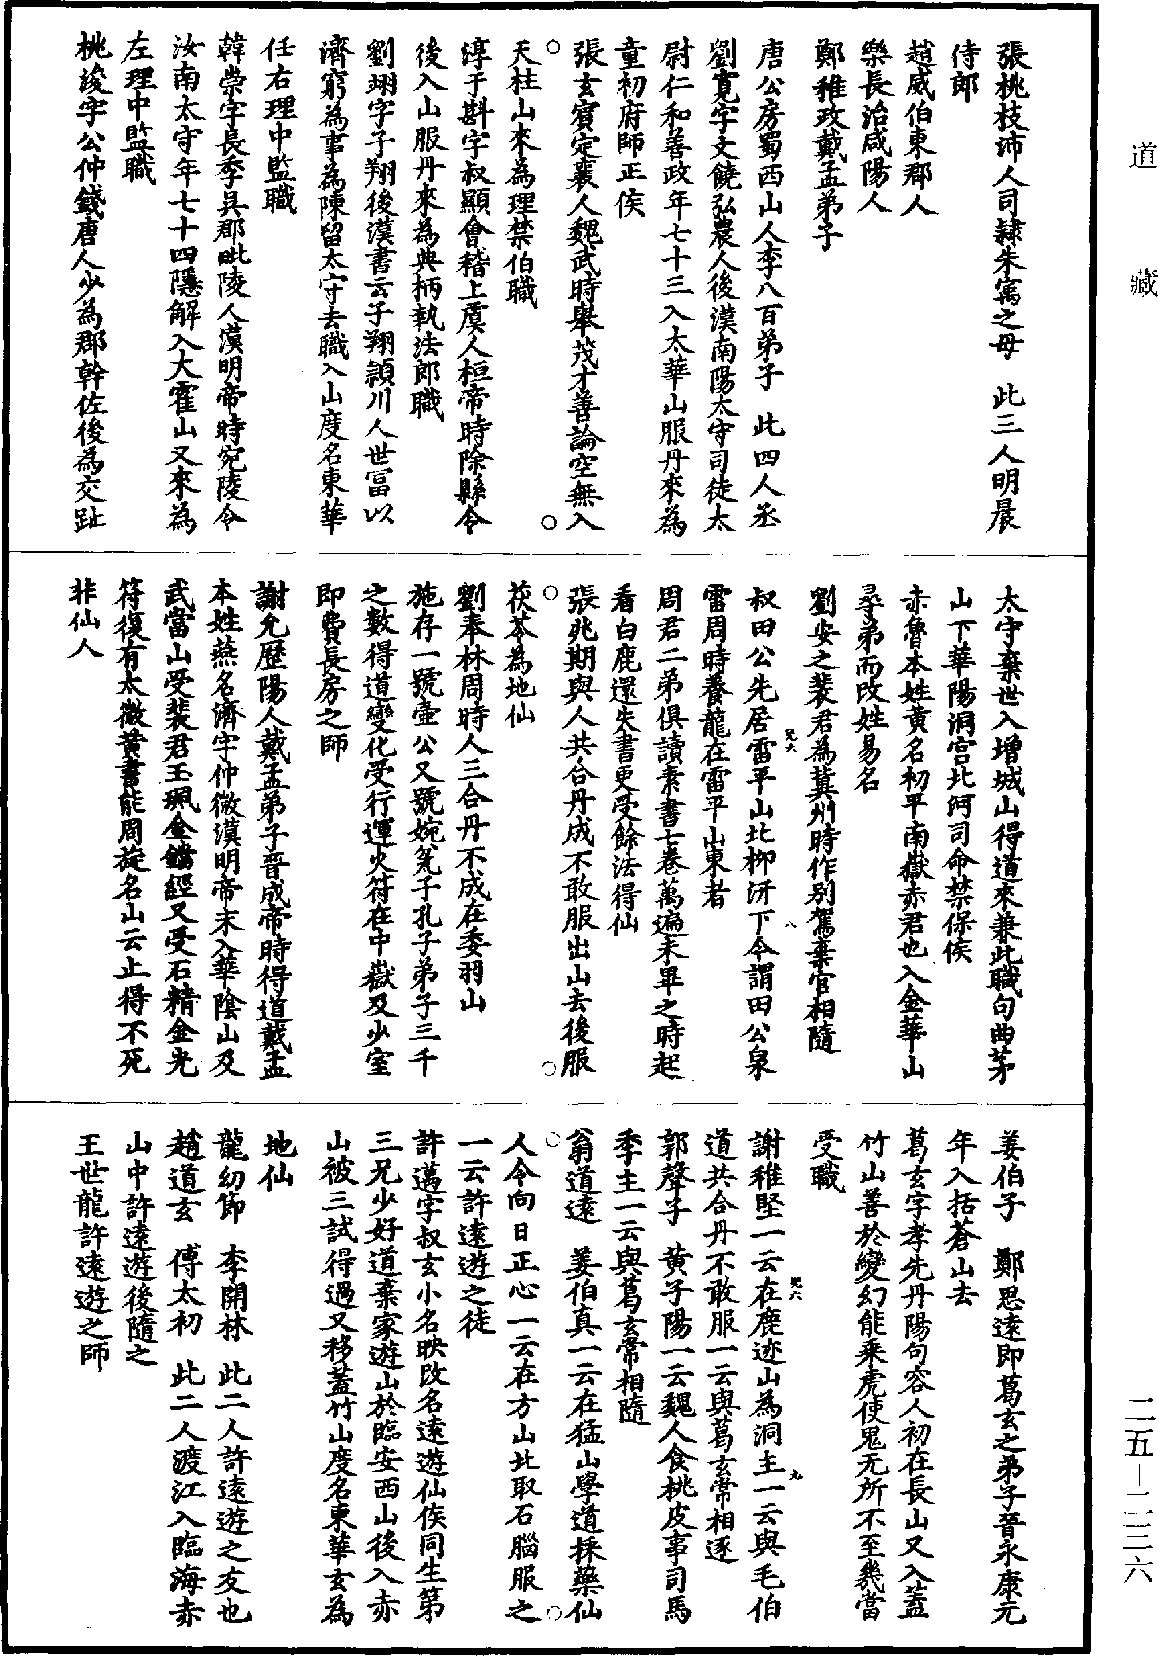 道藏
二五—二三六
張桃枝沛人司隸朱寓之母　此三人明晨
侍郎
趙威伯東郡人
樂長治咸陽人
鄭稚政戴孟弟子
唐公房蜀西山人李八百弟子　此四人丞
劉寬字文饒弘農人後漢南陽太守司徒太
尉仁和善政年七十三入太華山服丹來為
童初府師正侯
張玄賓定襄人魏武時舉茂才善論空無入
天柱山來為理禁伯職
淳于斟字叔顯會稽上虞人桓帝時除縣令
後入山服丹來為典柄執法郎職
劉翊字子翔後漢書云子翔潁川人世富以
濟窮為事為陳留太守去職入山度名東華
任右理中監職
韓崇字長季吳郡毗陵人漢明帝時宛陵令
汝南太守年七十四隱解入大霍山又來為
左理中監職
桃俊字公仲錢唐人少為郡幹佐後為交趾
太守棄世入增城山得道來兼此職句曲茅
山下華陽洞宮北河司命禁保侯
赤魯本姓黃名初平南嶽赤君也入金華山
尋弟而改姓易名
劉安之裴君為冀州時作別駕棄官相隨
叔田公先居雷平山北柳汧下今謂田公泉
雷周時養龍在雷平山東者
周君二弟俱讀素書七卷萬遍未畢之時起
看白鹿還失書更受餘法得仙
張兆期與人共合丹成不敢服出山去後服
茯苓為地仙
劉奉林周時人三合丹不成在委羽山
施存一號壺公又號婉盆子孔子弟子三千
之數得道變化受行運火符在中嶽及少室
即費長房之師
謝允歷陽人戴孟弟子晉成帝時得道戴孟
本姓燕名濟字仲微漢明帝末入華陰山及
武當山受裴君玉珮金鐺經又受石精金光
符復有太微黃書能周旋名山云止得不死
非仙人
姜伯子　鄭思遠即葛玄之弟子晉永康元
年入括蒼山去
葛玄字孝先丹陽句容人初在長山又入蓋
竹山善於變幻能乘虎使鬼无所不至幾當
受職
謝稚堅一云在鹿迹山為洞主一云與毛伯
道共合丹不敢服一云與葛玄常相逐
郭聲子　黃子陽一云魏人食桃皮事司馬
季主一云與葛玄常相隨
翁道遠　姜伯真一云在猛山學道採藥仙
人令向日正心一云在方山北取石腦服之
一云許遠遊之徒
許邁字叔玄小名映改名遠遊仙侯同生第
三兄少好道棄家遊山於臨安西山後入赤
山被三試得過又移蓋竹山度名東華玄為
地仙
龍幼節　李開林　此二人許遠遊之友也
趙道玄　傅太初　此二人渡江入臨海赤
山中許遠遊後隨之
王世龍許遠遊之師